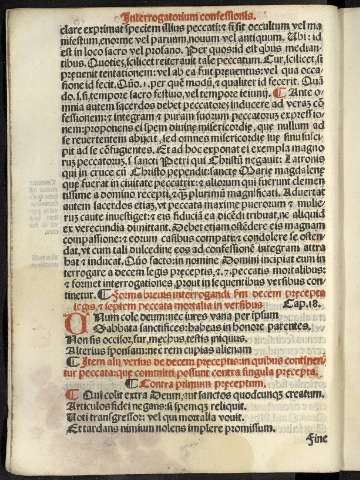 Interrogatorium confessionis.
clare exprimat speciem illius peccati: si sit occultum vel ma
nifestum, enorme vel paruum, nouum vel antiquum. Ubi: id
est in loco sacro vel profano. Per quos: id est quibus median-
tibus. Quoties, scilicet reiterauit tale peccatum. Cur, scilicet, si
preuenit tentationem: vel ab ea fuit preuentus: vel qua occa-
sione id fecit. Quō. i. per quē modū, & qualiter id fecerit. Quā
do. s. si tempore sacro festiuo, vel tempore ieiunij. ¶ Ante o-
mnia autem sacerdos debet peccatores inducere ad veras cō
fessionem: & integram & puram suorum peccatorum expressio
nem: proponens ei spem diuine misericordie, que nullum ad
se reuertentem abijcit, sed omnes misericordie sue sinu susci-
pit ad se cōfugientes. Et ad hoc exponat ei exempla magno
rum peccatorum, s. sancti Petri qui Christū negauit: Latronis
qui in cruce cū Christo pependit: sancte Marie magdalene
que fuerat in ciuitate peccatrix: & aliorum qui fuerunt clemen
tissime a domino recepti, & q plurimū magnificati. Aduertat
autem sacerdos etiam, vt peccata maxime puerorum & mulie-
rum caute inuestiget: & eis fiduciā ea dicēdi tribuat, ne aliquid
ex verecundia dimittant. Debet etiam ostēdere eis magnam
compassionē: & eorum casibus compati: & condolere se osten-
dat, vt cum tali dulcedine eos ad confessionē integram attra
hat & inducat. Quo facto: in nomine Domini incipiat eum in
terrogare a decem legis preceptis, & .7. peccatis mortalibus:
& formet interrogationes, prout in sequentibus versibus con
tinetur. ¶ Forma breuis interrogandi. Fm decem precepta
legis, & septem peccata mortalia in versibus Cap. 18.
Unum cole deum: ne iures vana per ipsum
Sabbata sanctifices: habeas in honore parentes.
Non sis occisor, fur, mechus, testis iniquus.
Alterius sponsam: nec rem cupias alienam
¶ Item alij versus de decem preceptis: in quibus contineri-
tur peccata: que committi possunt contra singula precepta.
¶ Contra primum preceptum.
¶ Qui colit extra Deum, aut sanctos quodcunque creatum.
Articulos fidei negans: & spemque reliquit.
Uoti transgressor: vel qui mortalia vouit.
Et tardans nimium nolens implere promissum.
Fine